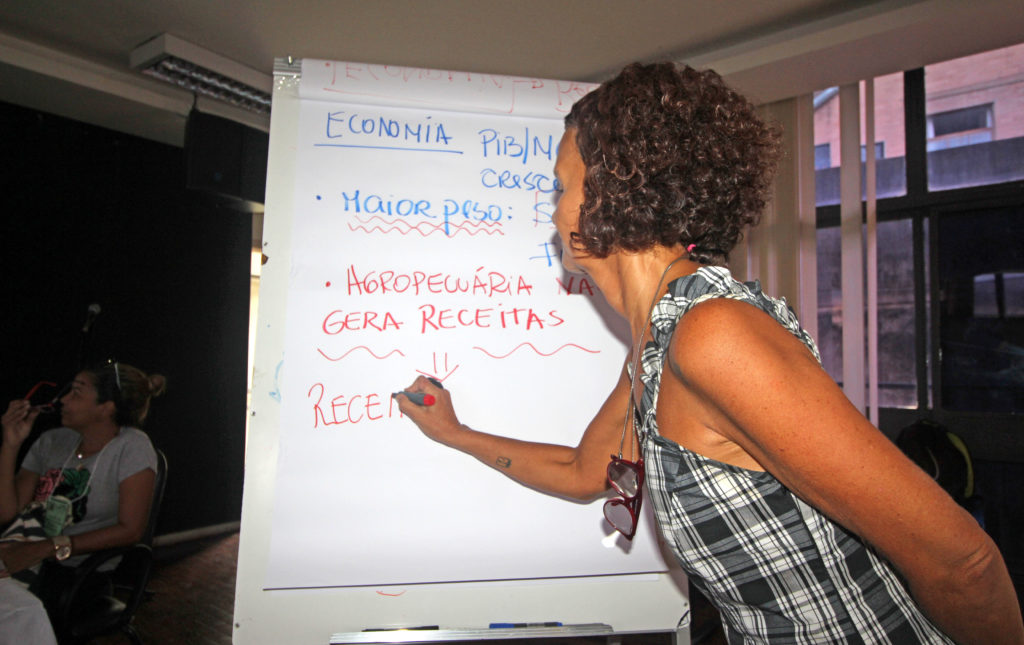 ECONOMIA PIB/M
CRESCE
• MAIOR PESO: S
• AGROPECUÁRIA NA
GERA RECEITAS
RECEI